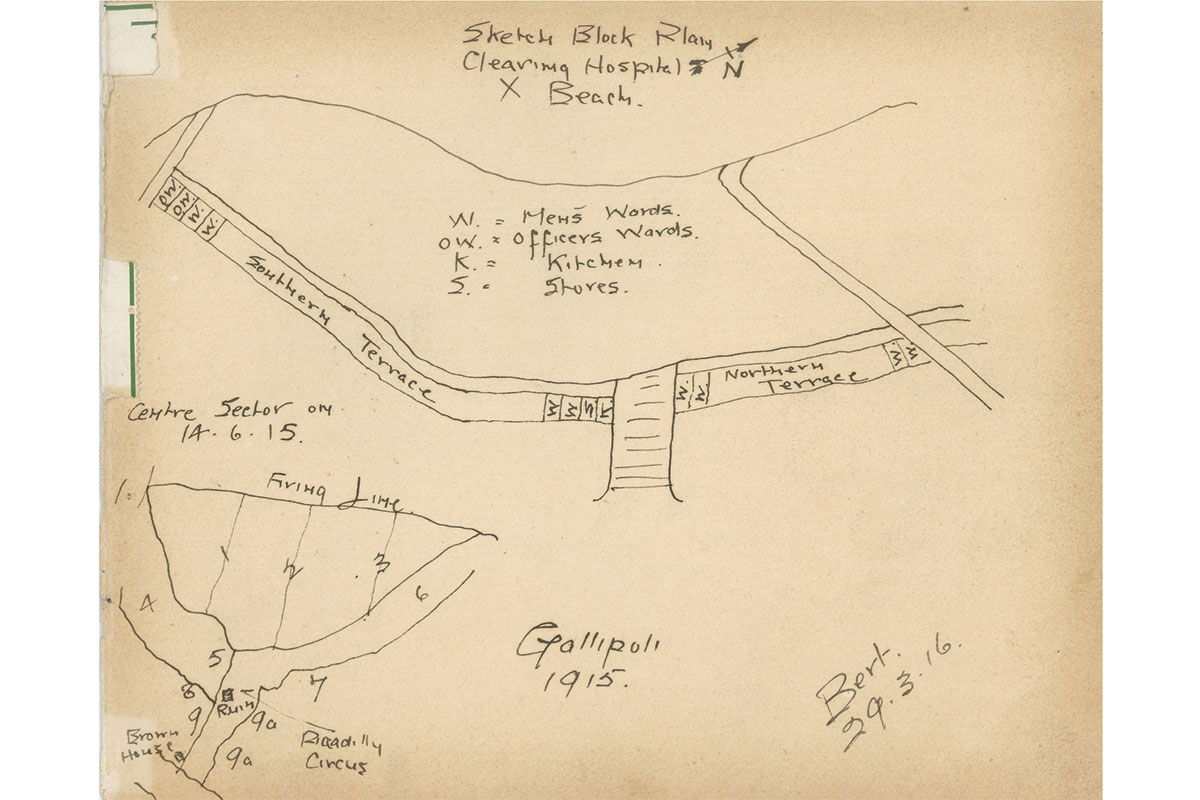 Sketch Block Plan
Clearing Hospital
X Beach.
N
W. = Mens Wards.
OW. = Officers Wards.
K. = Kitchen.
S. = Stores.
OW.
OW
W.
W.
Southern Terrace
W
W
K
W
W
Northern
Terrace
W
W
Centre Sector on
14.6.15.
Firing Line
1
2
3
4
5
6
7
8
9
9a
9a
Ruin
Brown
House
Piccadilly
Circus
Gallipoli
1915.
Bert.
29.3.16.